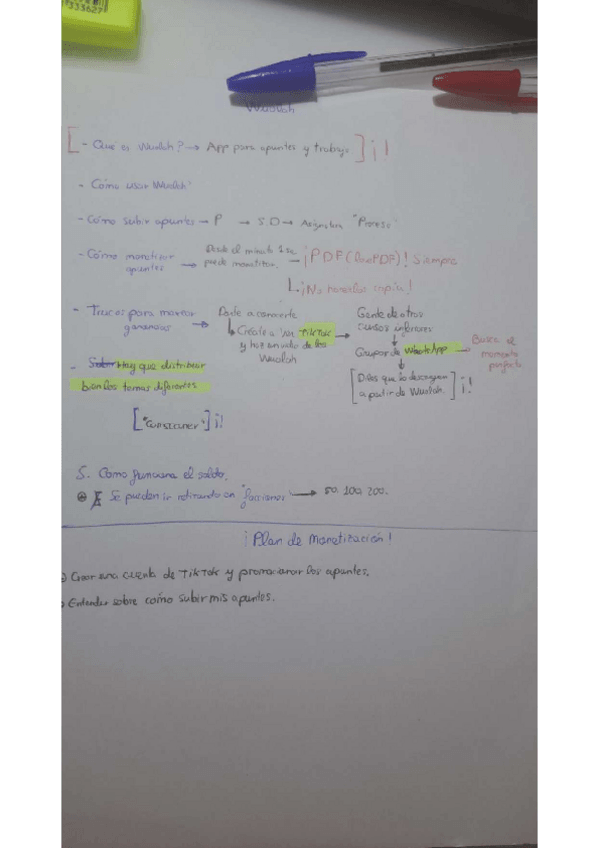 333627
Wuolah
[ - Qué es Wuolah? → App para apuntes y trabajo ] ¡!
- Cómo usar Wuolah
- Cómo subir apuntes → P → S.D → Asignatura "Proceso"
- Cómo monetizar apuntes → Desde el minuto 1 se puede monetizar. → ¡PDF ( PDF)! Siempre
↳ ¡No hacerlas copia!
- Trucos para
ganancias → Darte a conocerte
↳ Créate un TikTok →
y haz un video de los
Wuolah
Gente de otros
cursos inferiores
↓
Grupos de WhatsApp → Busca el
momento
perfecto
↓
[ Diles que lo descarguen
a partir de Wuolah. ] ¡!
- Subir Hay que distribuir
bien los temas diferentes
[ " " ] ¡!
5. Como funciona el saldo.
Se pueden ir retirando en "facciones" → 50, 100, 200.
¡Plan de Monetización!
) Crear una cuenta de TikTok y promocionar los apuntes.
) Entender sobre como subir mis apuntes.